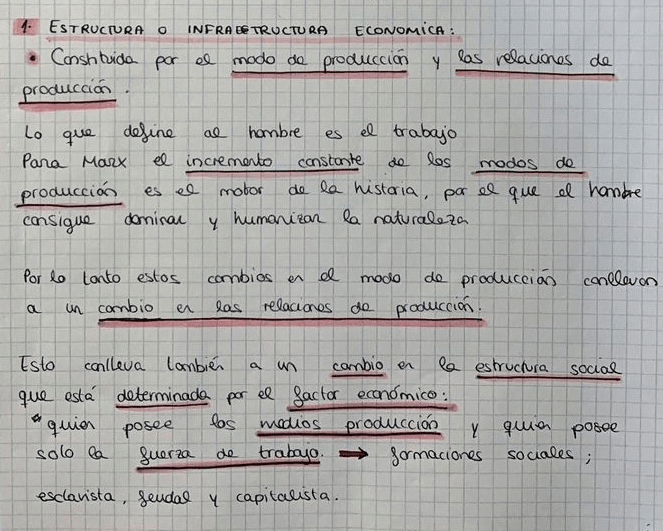 1. ESTRUCTURA O INFRAESTRUCTURA ECONOMICA:
• Constituida por el modo de producción y las relaciones de
producción.
Lo que define al hombre es el trabajo
Para Marx el incremento constante de los modos de
producción es el motor de la historia, por el que el hombre
consigue dominar y humanizar la naturaleza
Por lo tanto estos cambios en el modo de producción conllevan
a un cambio en las relaciones de producción.
Esto conlleva también a un cambio en la estructura social
que está determinada por el factor económico:
* quien posee los medios producción y quien posee
solo la fuerza de trabajo. → formaciones sociales;
esclavista, feudal y capitalista.